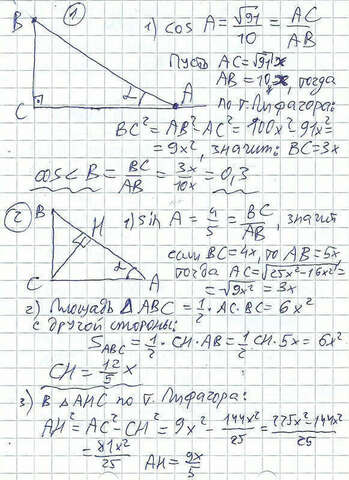 ① 1) cos A = √91/10 = AC/AB
B
Пусть AC = √91x
AB = 10x, тогда
α A
C
по т. Пифагора:
BC² = AB² - AC² = 100x² - 91x² =
= 9x², значит: BC = 3x
cos < B = BC/AB = 3x/10x = 0,3
② 1) sin A = 4/5 = BC/AB, значит
B H
если BC = 4x, то AB = 5x
C α A
тогда AC = √25x² - 16x² =
= √9x² = 3x
2) Площадь Δ ABC = 1/2 · AC · BC = 6x²
с другой стороны:
S ABC = 1/2 · CH · AB = 1/2 CH · 5x = 6x²
CH = 12/5 x
3) В Δ AHC по т. Пифагора:
AH² = AC² - CH² = 9x² - 144x²/25 = 225x² - 144x²/25
= 81x²/25 AH = 9x/5